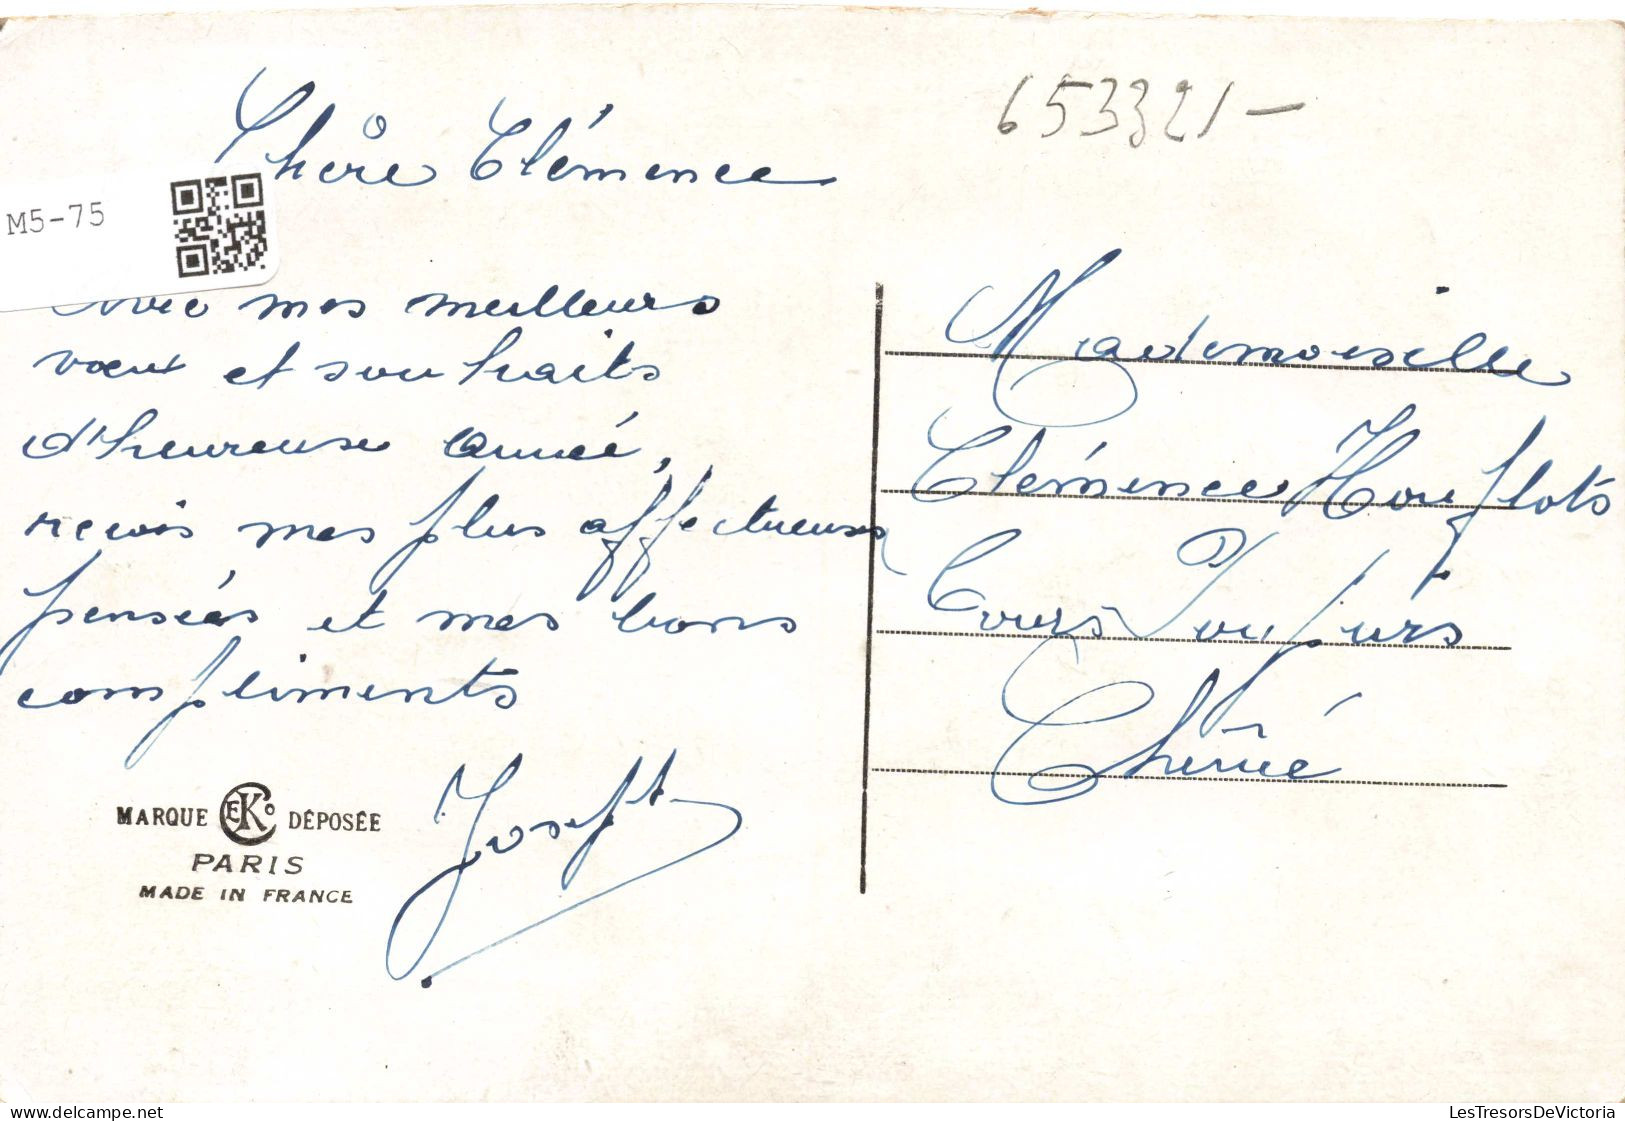 653321-
Chère Clémence
M5-75
Avec mes meilleurs
vœux et souhaits
d'heureuse année,
reçois mes plus affectueuses
pensées et mes bons
compliments
Joseph
MARQUE EKCo DÉPOSÉE
PARIS
MADE IN FRANCE
Mademoiselle
Clémence Houflots
Cours
Chênée
delcampe.net
LesTresorsDeVictoria